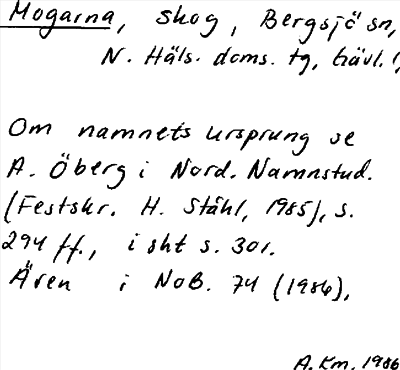 Mogarna, skog, Bergsjö sn,
N. Häls. doms. tg, Gävl. l,
Om namnets ursprung se
A. Öberg i Nord. Namnstud.
(Festskr. H. Ståhl, 1985), s.
294 ff., i sht s. 301.
Även i NoB. 74 (1986),
A. Km. 1986